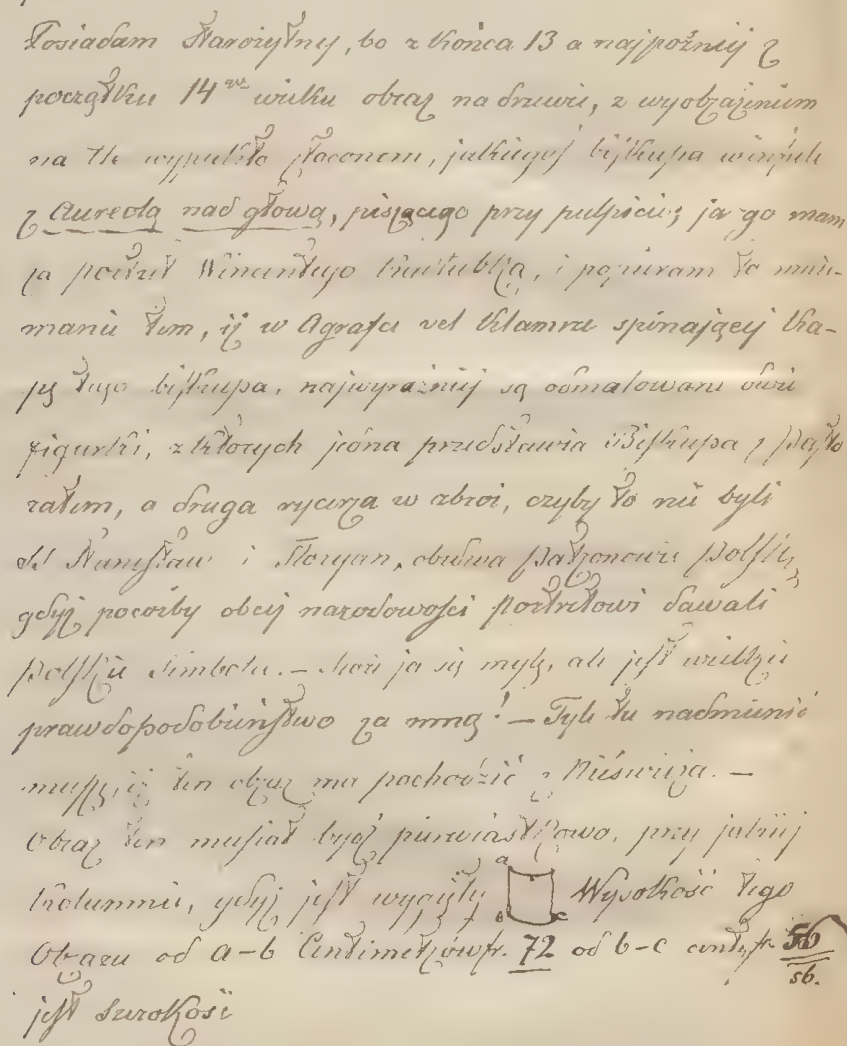 Posiadam Starożytny, bo z końca 13 a najpóźniej z
początku 14go wieku obraz na drzewie, z wyobrażeniem
na tle wypukło złoconem, jakiegoś biskupa w infule
z Aureolą nad głową, piszącego przy pulpicie; ja go mam
za portret Wincentego Kadłubka, i popieram to mnie-
manie tem, iż w Agrafie vel klamrze spinającej ka-
pę tego biskupa, najwyraźniej są odmalowane dwie
figurki, z których jedna przedstawia Biskupa z Pasto
rałem, a druga rycerza w zbroi, czyby to nie byli
SS Stanisław i Floryan, obudwa Patronowie Polski,
gdyż pocóżby obcej narodowości Portretowi dawali
Polskie Simbola. – może ja się mylę, ale jest wielkie
prawdopodobieństwo za mną! – Tyle tu nadmienić
muszę, iż ten obraz ma pochodzić z Nieświeża. –
Obraz ten musiał bydź pierwiastkowo, przy jakiej
kolumnie, gdyż jest wygięty a b c Wysokość tego
Obrazu od a–b Centimetrów fr. 72 od b–c centr. fr. 56
56.
jest Szerokość